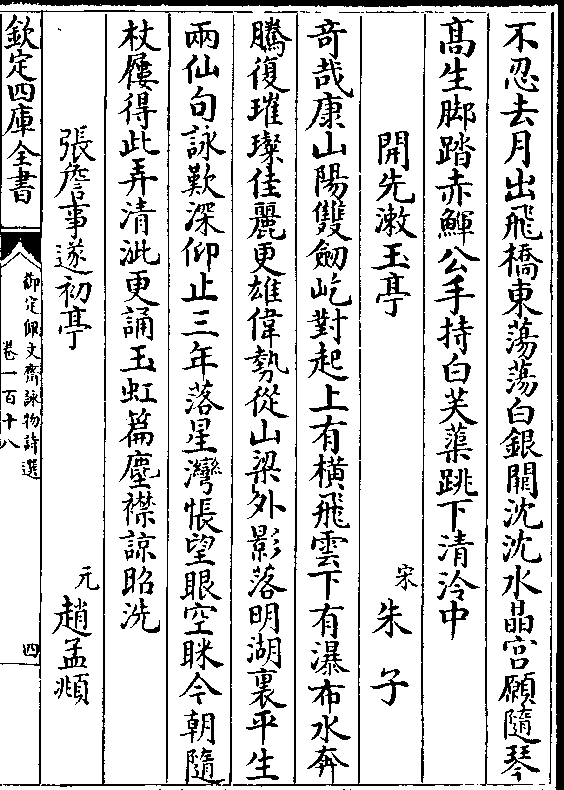 不忍去月出飛橋東蕩蕩白銀闕沈沈水晶宮願隨琴
髙生脚踏赤鯶公手持白芙蕖跳下清泠中
開先漱玉亭
宋
朱子
竒哉康山陽雙劒屹對起上有橫飛雲下有瀑布水奔
騰復璀璨佳麗更雄偉勢從山梁外影落明湖裏平生
兩仙句詠歎深仰止三年落星灣悵望眼空眯今朝隨
杖屨得此弄清泚更誦玉虹篇塵襟諒昭洗
張詹事遂初亭
元
趙孟頫
欽定四庫全書
御定佩文齋詠物詩選
卷一百十八
四